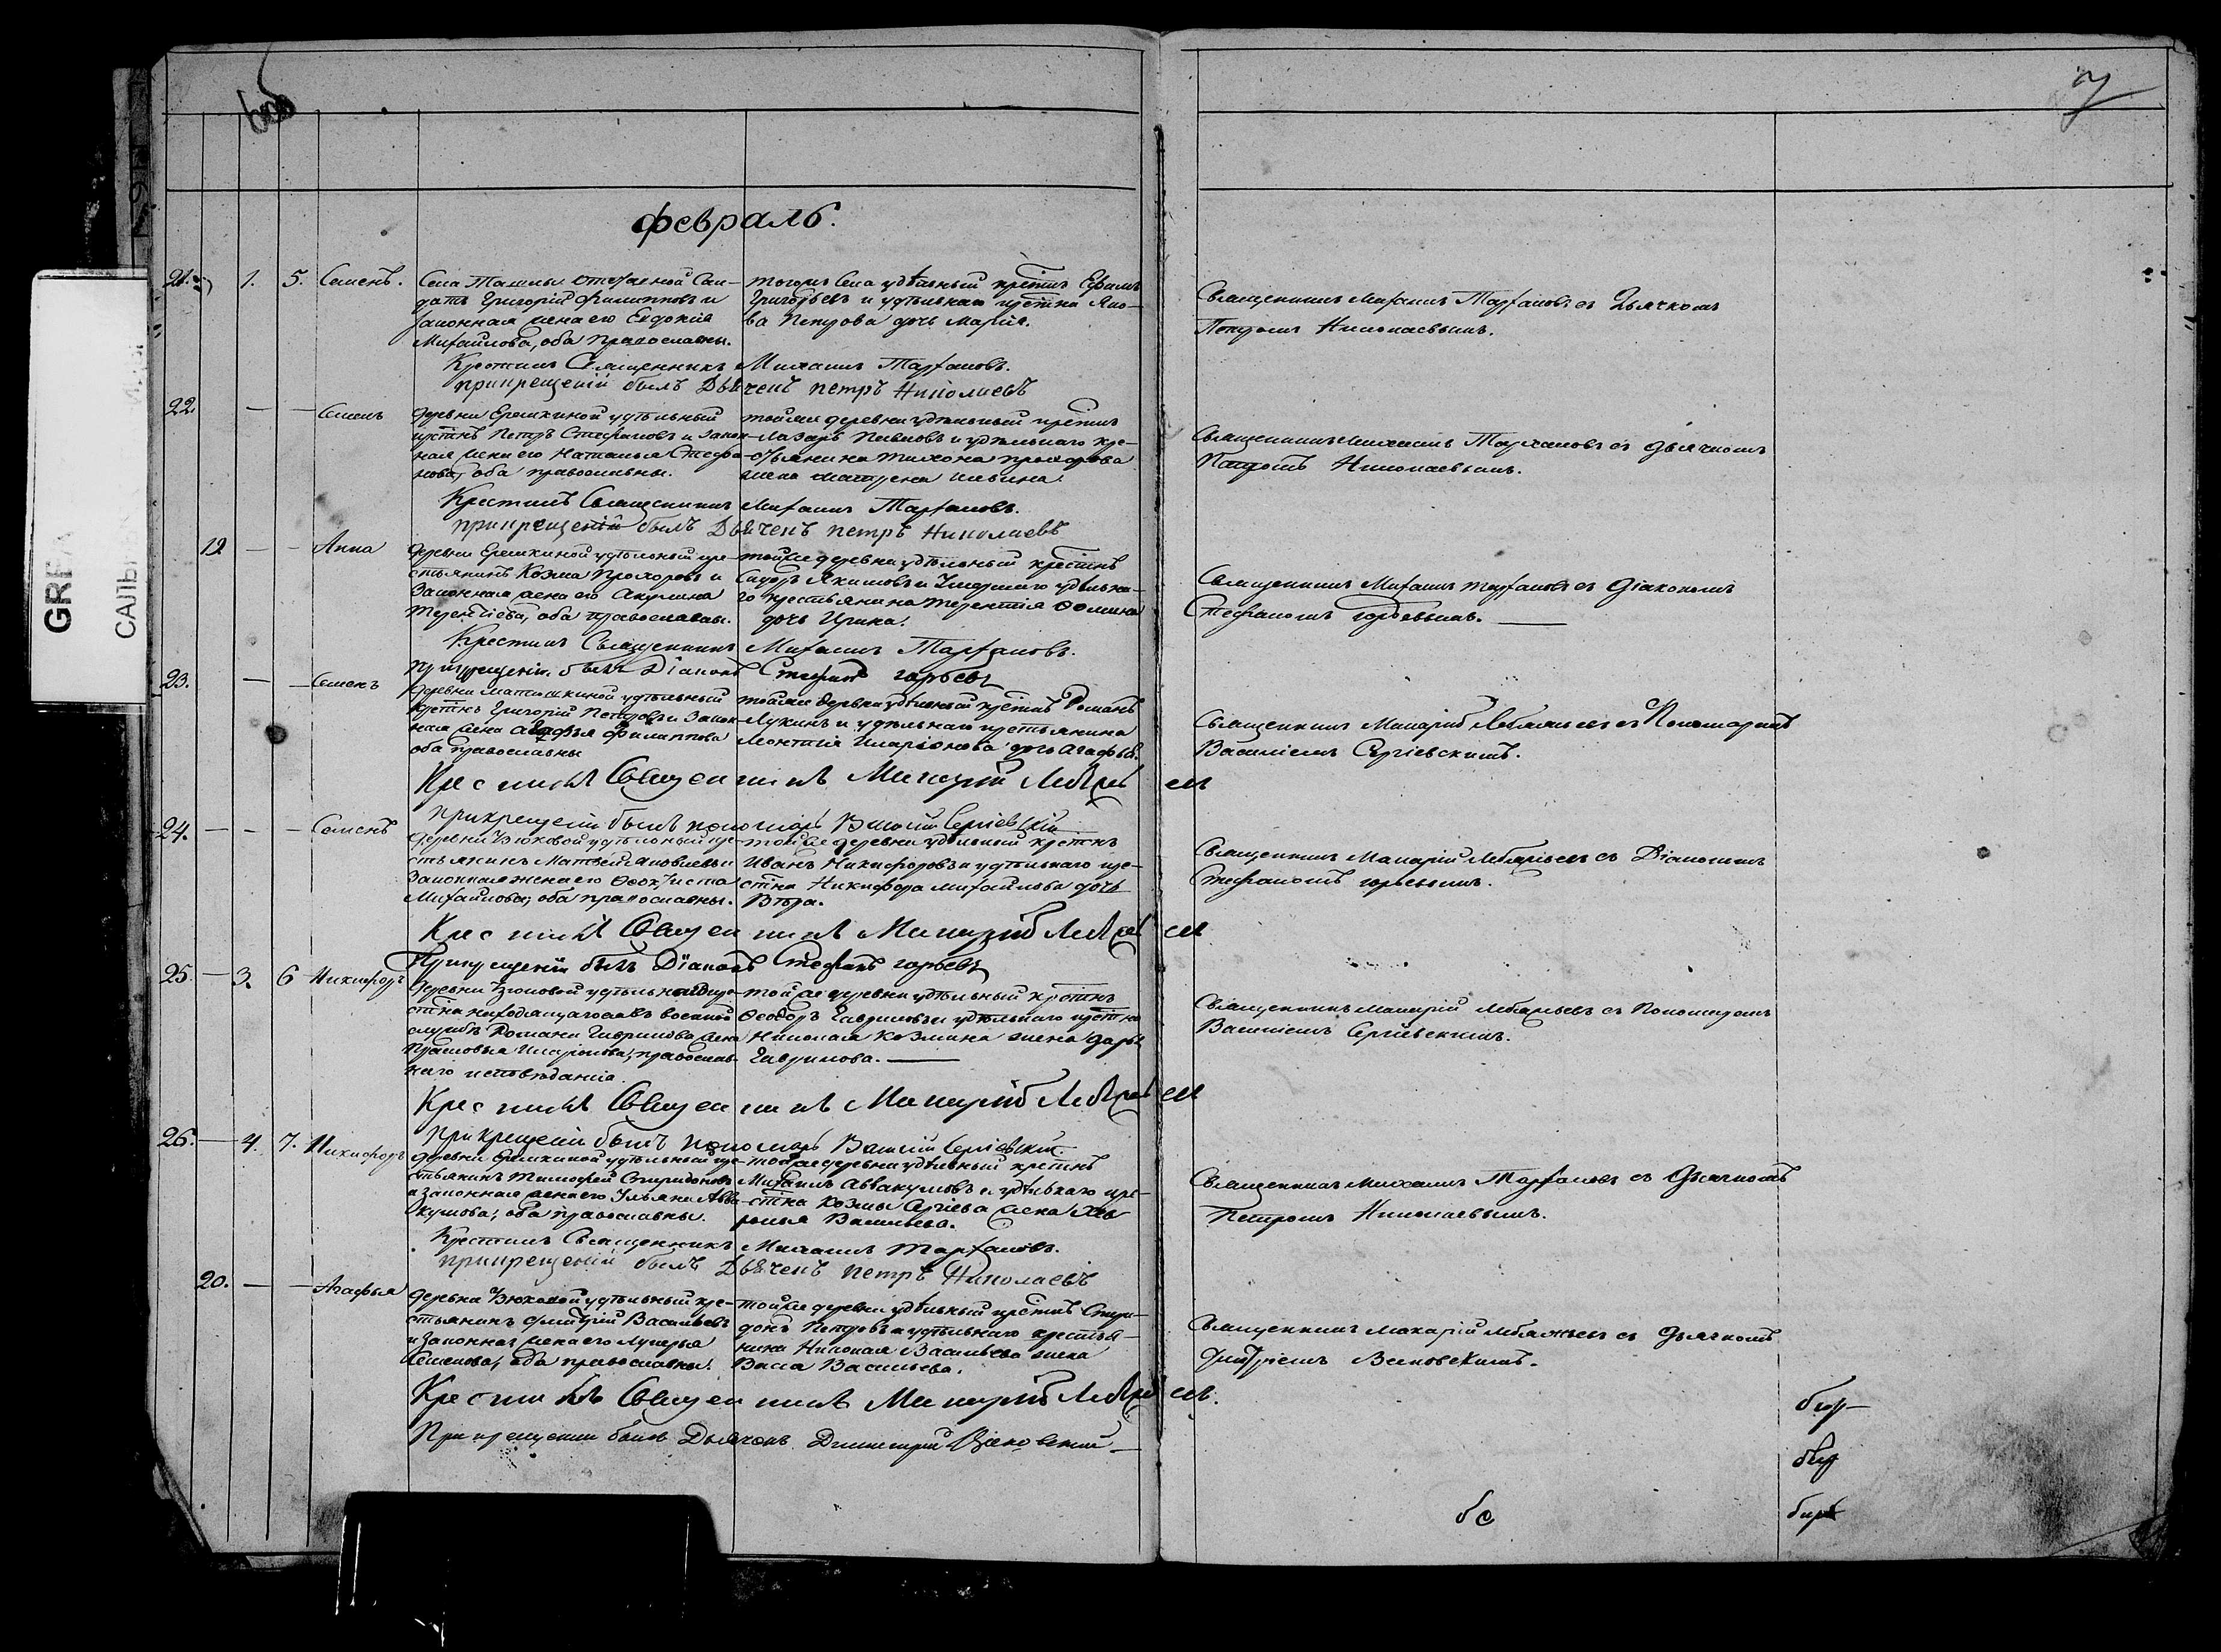 6об
7
февраль.
21. 1. 5. Семенъ.
Села Тагаши
датъ Григорій Филипповъ и
законная жена его Евдокія
Михайлова, оба православны.
тогожъ села удѣльный крестнъ Ефимъ
Григорьевъ и удѣльнаго крестна
ва Петрова дочь Марія.
Священникъ Михаилъ Тарханов съ Дьячкомъ
Петромъ Николаевымъ.
Крестилъ Священникъ Михаилъ Тархановъ.
прикрещеніи былъ Дьячекъ петръ Николаевъ
22. — — Семенъ
деревни Ермкиной удѣльный
крстнъ Петръ Стефановъ и закон-
ная жена его Наталья Стефа-
нова, оба православны.
тойже деревни удѣльный крстнъ
Лазарь и удѣльнаго кре-
стьянина Тихона прохорова
жена Матрена
Священникъ Михаилъ Тархановъ съ дьячкомъ
Петромъ Николаевымъ.
Крестилъ Священникъ Михаилъ Тархановъ.
прикрещеніи былъ Дьячекъ петръ Николаевъ
19. — — Анна
деревни Ермкиной удѣльный кре-
стьянинъ Козма Прохоровъ и
законная жена его Акулина
Терентіева, оба православны.
тойже деревни удѣльный крестнъ
Сидоръ Якимовъ и Умершаго удѣльна-
го крестьянина терентія Ѳомина
дочь Ирина.
Священникъ Михаилъ тархановъ съ Діакономъ
Стефаномъ горбевымъ. —
Крестилъ Священникъ Михаилъ Тархановъ.
При крещеніи былъ Діаконъ Стефанъ горбевъ
23. — — Семенъ
деревни удѣльный
крстнъ Григорій Петровъ и закон-
ная жена Агафья Филиппова
оба православны
тойже деревни удѣльный крстнъ Романъ
Лукинъ и удѣльнаго крестьянина
Леонтія Иларіонова дочь Агафья.
Священникъ Макарій Лебяжьевъ съ Пономаремъ
Василіемъ Сергіевскимъ.
Крестилъ Священникъ Макарій Лебяжьевъ
прикрещеніи былъ пономарь Василій Сергіевскій
24. — — — Семенъ
деревни Вюковой удѣльный кре-
стьянинъ Матвей Яковлевъ и
законная жена его Ѳеоктиста
Михайлова, оба православны.
тойже деревни удѣльный крстнъ
Иванъ Никифоровъ и удѣльнаго кре-
стна Никифора Михайлова дочь
Вѣра.
Священникъ Макарій Лебяжьевъ съ Діакономъ
Стефаномъ горбевымъ.
Крестилъ Священникъ Макарій Лебяжьевъ
При крещеніи былъ Діаконъ Стефанъ горбевъ
25. — 3. 6 Никифоръ
деревни удѣльнаго кре-
стна находящагося въ военной
службѣ Романа Гаврилова жена
Прасковья Иларіонова, православ-
наго исповѣданія.
тойже деревни удѣльный крстнъ
Ѳеодоръ Гавриловъ и удѣльнаго крстна
Николая Козмина жена дарья
Гаврилова. —
Священникъ Макарій Лебяжьевъ съ Пономаремъ
Василіемъ Сергіевскимъ.
Крестилъ Священникъ Макарій Лебяжьевъ
при крещеніи былъ пономарь Василій Сергіевскій.
26. — 4. 7. Никифоръ
деревни Ермкиной удѣльный кре-
стьянинъ Тимофей Спиридоновъ
и законная жена его Ульяна Авва-
кумова, оба православны.
тойже деревни удѣльный крстнъ
Михаилъ Аввакумовъ и удѣльнаго кре-
стна Козмы Сергіева жена Хев
ронья Васильева.
Священникъ Михаилъ Тархановъ съ Дьячкомъ
Петромъ Николаевымъ.
Крестилъ Священникъ Михаилъ тархановъ.
прикрещеніи былъ Дьячекъ петръ Николаевъ
20. — — Агафья
деревни Вюковой удѣльный кре-
стьянинъ Дмитрій Васильевъ
и законная жена его Лукерья
Семенова, оба православны.
тойже деревни удѣльный крстнъ Спири-
донъ Петровъ и удѣльнаго крестья-
нина Николая Васильева жена
Васса Васильева.
Священникъ Макарій Лебяжьевъ съ Дьячкомъ
Дмитріемъ
Крестилъ Священникъ Макарій Лебяжьевъ.
При крещеніи былъ Дьячокъ Димитрій
GRF
САЛЫ